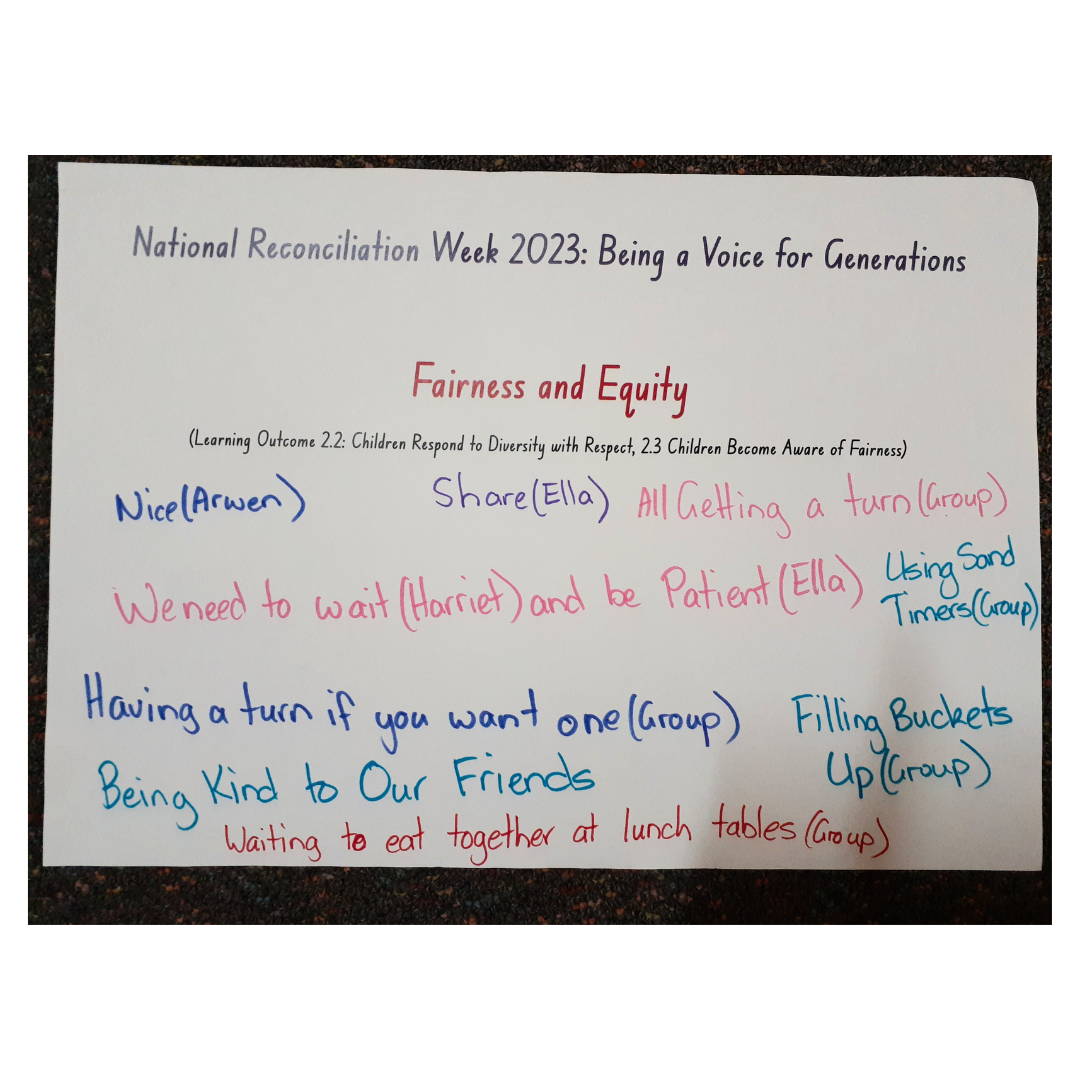 National Reconciliation Week 2023: Being a Voice for Generations
Fairness and Equity
(Learning Outcome 2.2: Children Respond to Diversity with Respect, 2.3 Children Become Aware of Fairness)
Nice (Arwen)
Share (Ella)
All Getting a turn (Group)
We need to wait (Harriet) and be Patient (Ella)
Using Sand
Timers (Group)
Having a turn if you want one (Group)
Filling Buckets
Up (Group)
Being Kind to Our Friends
Waiting to eat together at lunch tables (Group)